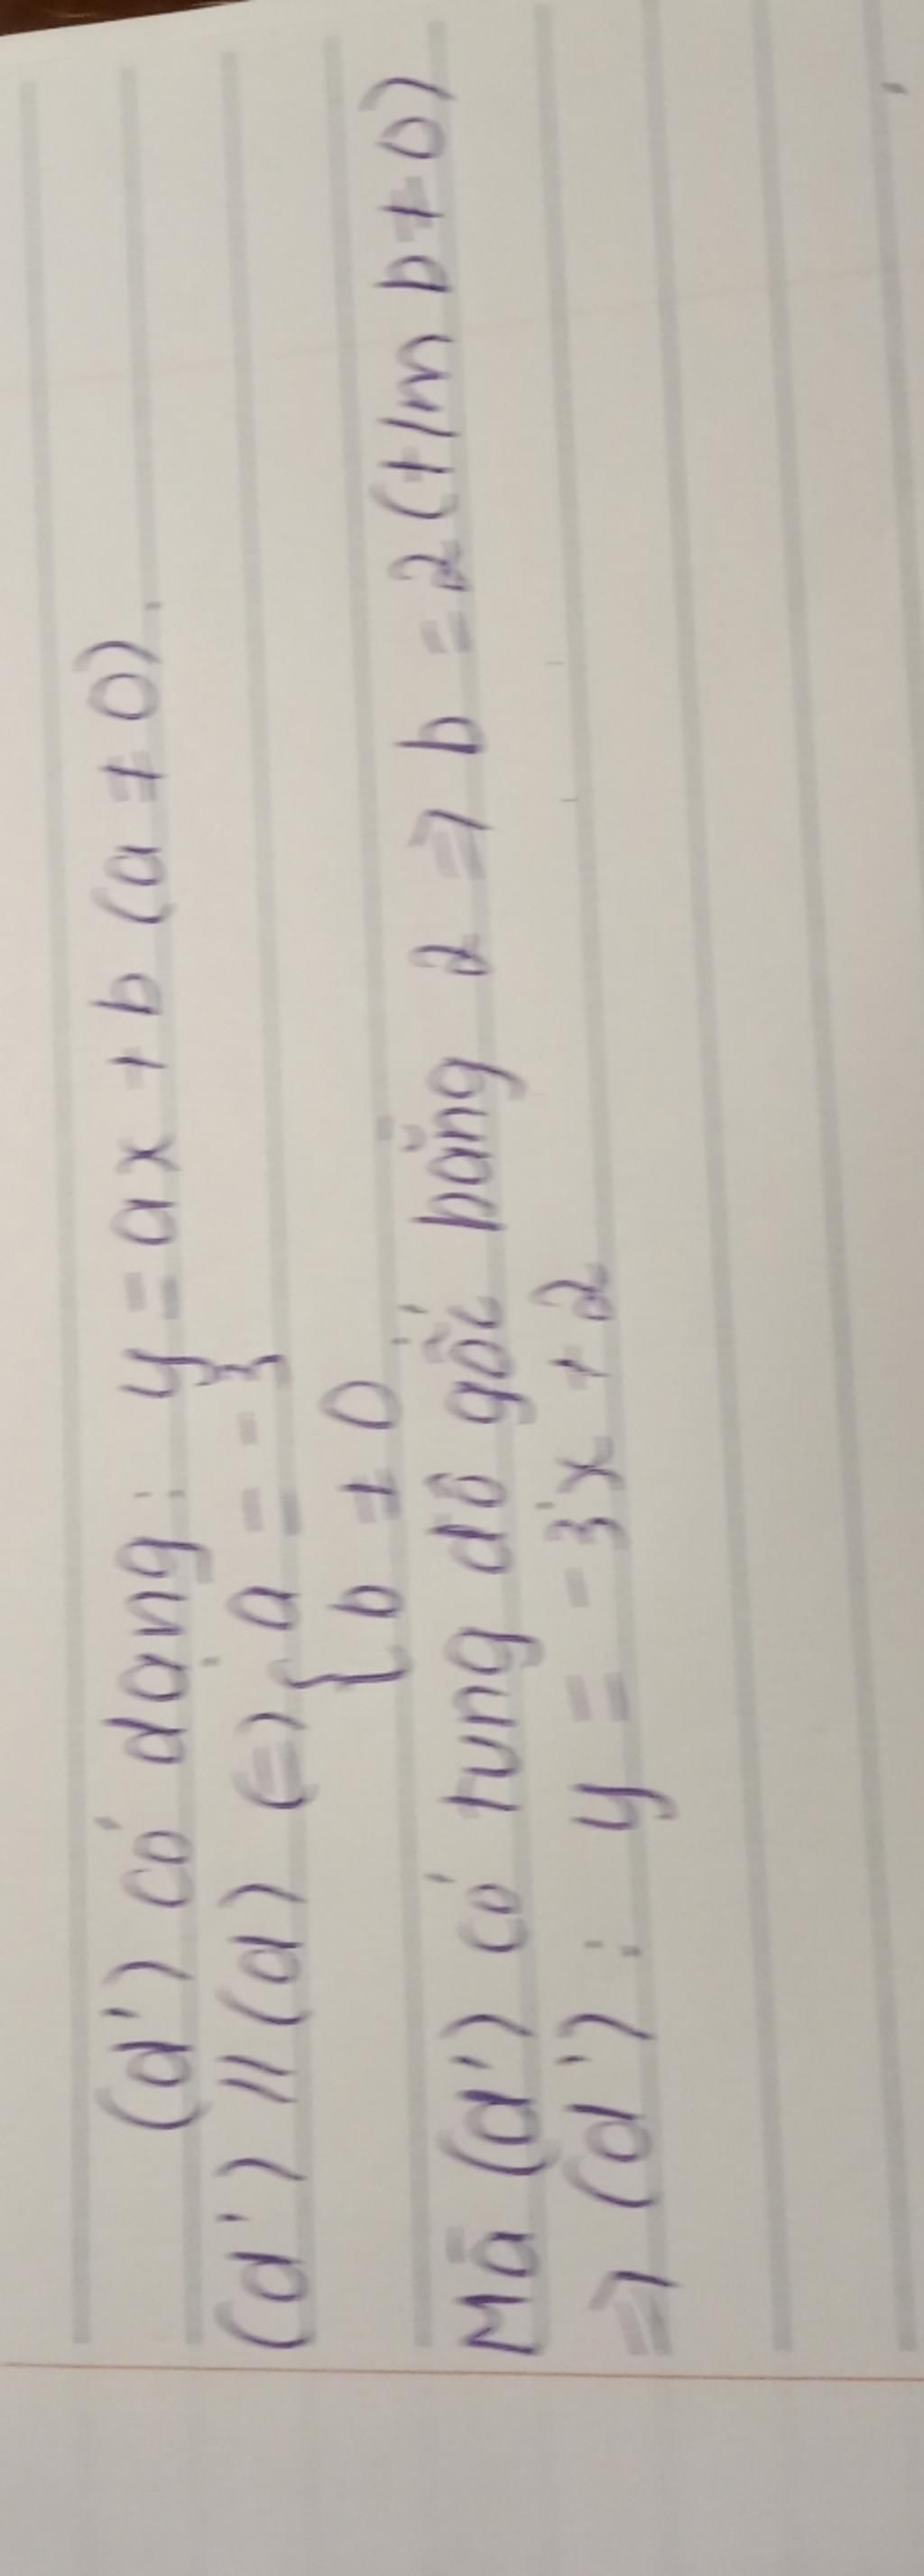 (d') có dạng : y = ax + b (a ≠ 0).
(d') // (d) <=> { a = -3
{ b ≠ 0
Mà (d') có tung độ gốc bằng 2 => b = 2 (t/m b ≠ 0)
=> (d') : y = -3x + 2